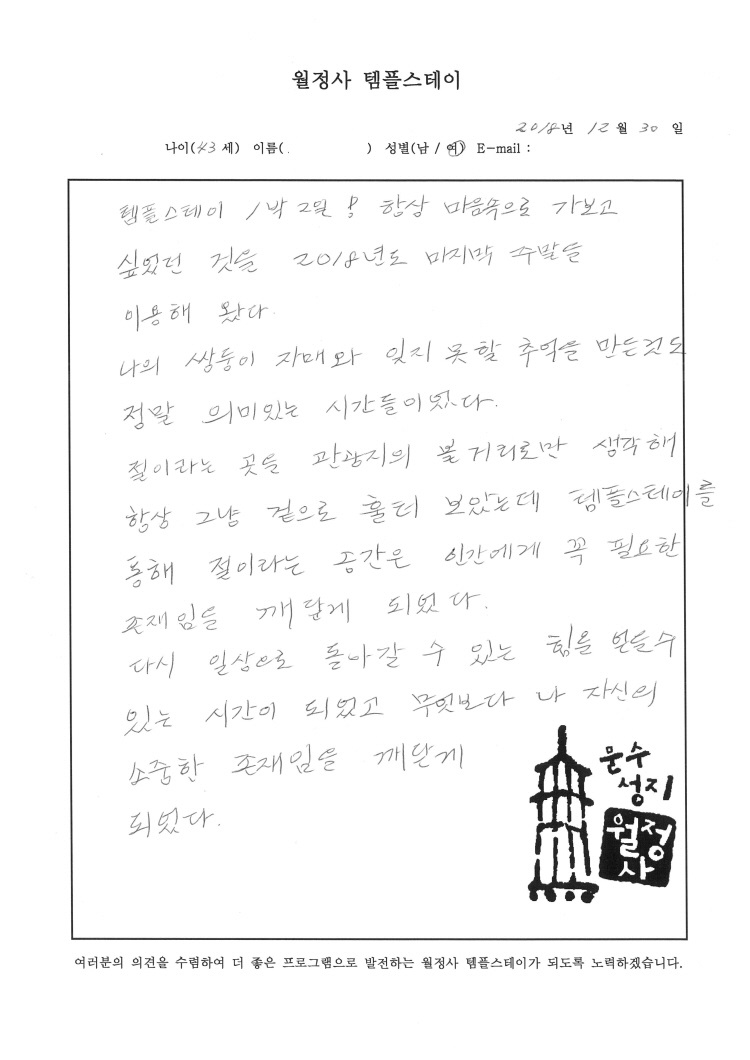 월정사 템플스테이
2018년 12월 30일
나이(43세) 이름( ) 성별(남 / 여) E-mail :
템플스테이 1박 2일! 항상 마음속으로 가보고
싶었던 것을 2018년도 마지막 주말을
이용해 왔다.
나의 쌍둥이 자매와 잊지 못할 추억을 만든것도
정말 의미있는 시간들이었다.
절이라는 곳을 관광지의 볼거리로만 생각해
항상 그냥 겉으로 훌터 보았는데 템플스테이를
통해 절이라는 공간은 인간에게 꼭 필요한
존재임을 깨닫게 되었다.
다시 일상으로 돌아갈 수 있는 힘을 얻을수
있는 시간이 되었고 무엇보다 나 자신의
소중한 존재임을 깨닫게
되었다.
문수
성지
월정
사
여러분의 의견을 수렴하여 더 좋은 프로그램으로 발전하는 월정사 템플스테이가 되도록 노력하겠습니다.